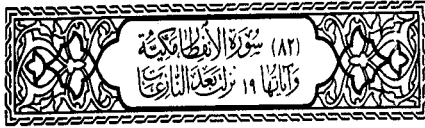 (٨٢) سُورَةُ الانفِطَارِ مَكِّيَّة
وَآيَاتُهَا ١٩ نَزَلَتْ بَعْدَ النَّازِعَات